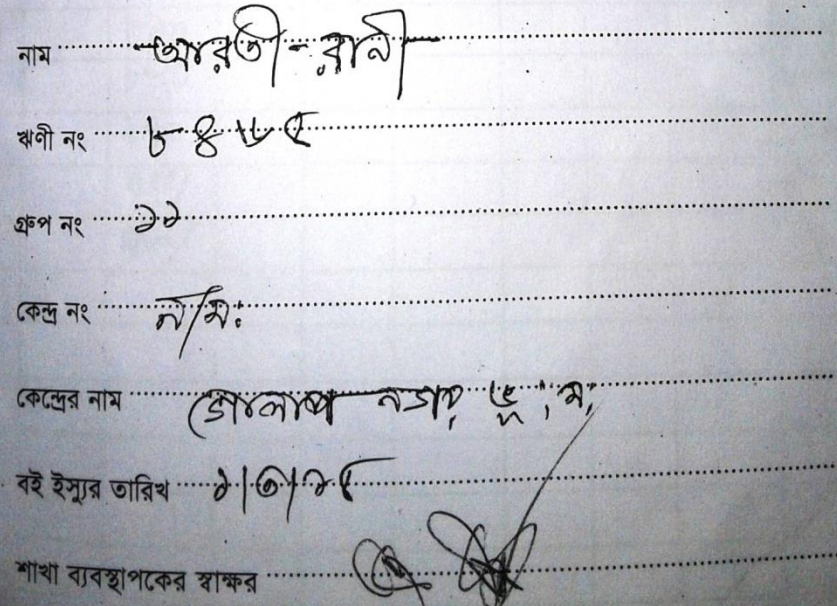 নাম আরতী-রানী
ঋণী নং ৮৪৬৫
গ্রুপ নং ১১
কেন্দ্র নং ন/ম:
কেন্দ্রের নাম গোলাপ নগর, ভূ, ম,
বই ইস্যুর তারিখ ১/৩/১৫
শাখা ব্যবস্থাপকের স্বাক্ষর